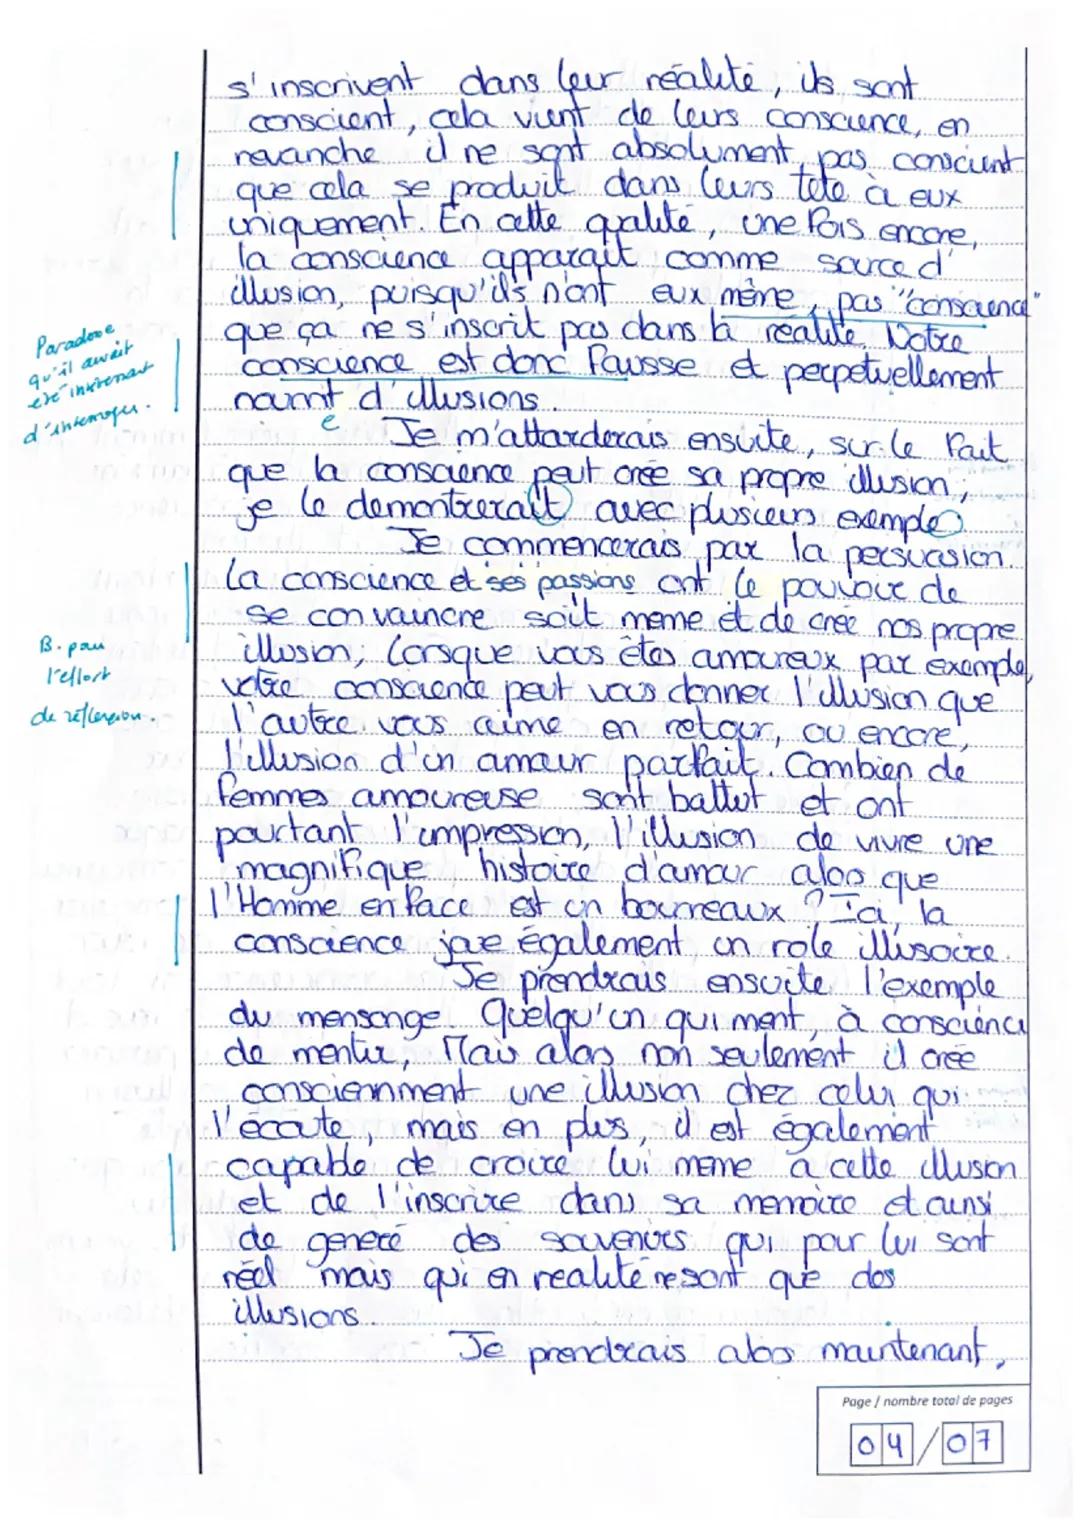 s'inscrivent dans leur réalité, ils sont
conscient, cela vient de leurs conscience, en
revanche il ne sont absolument pas conscient
que cela se produit dans leurs tete à eux
uniquement. En cette qualité, une fois encore,
la conscience apparait comme source d'
illusion, puisqu'ils n'ont eux même pas "conscience"
que ça ne s'inscrit pas dans la réalité. Notre
conscience est donc fausse et perpetuellement
nourrit d'illusions.
Paradoxe
qu'il aurait
été intéressant
d'interroger.
Je m'attarderais ensuite, sur le fait
que la conscience peut crée sa propre illusion,
je le demontrerait avec plusieurs exemple.
Je commencerais par la persuasion.
La conscience et ses passions ont le pouvoir de
se convaincre soit meme et de crée nos propre
illusion, lorsque vous êtes amoureux par exemple,
votre conscience peut vous donner l'illusion que
l'autre vous aime en retour, ou encore,
l'illusion d'un amour parfait. Combien de
femmes amoureuse sont battut et ont
pourtant l'impression, l'illusion de vivre une
magnifique histoire d'amour alors que
l'Homme en face est un bourreaux ? Ici, la
conscience joue également un role illusoire.
B. pour
l'effort
de réflexion.
Je prendrais ensuite l'exemple
du mensonge. Quelqu'un qui ment, à conscience
de mentir, Mais alors non seulement il crée
consciemment une illusion chez celui qui
l'écoute, mais en plus, il est également
capable de croire lui meme à cette illusion
et de l'inscrire dans sa memoire et aussi
de generé des souvenirs qui pour lui sont
réel mais qui en realité ne sont que des
illusions.
Je prendrais alors maintenant,
Page / nombre total de pages
04/07